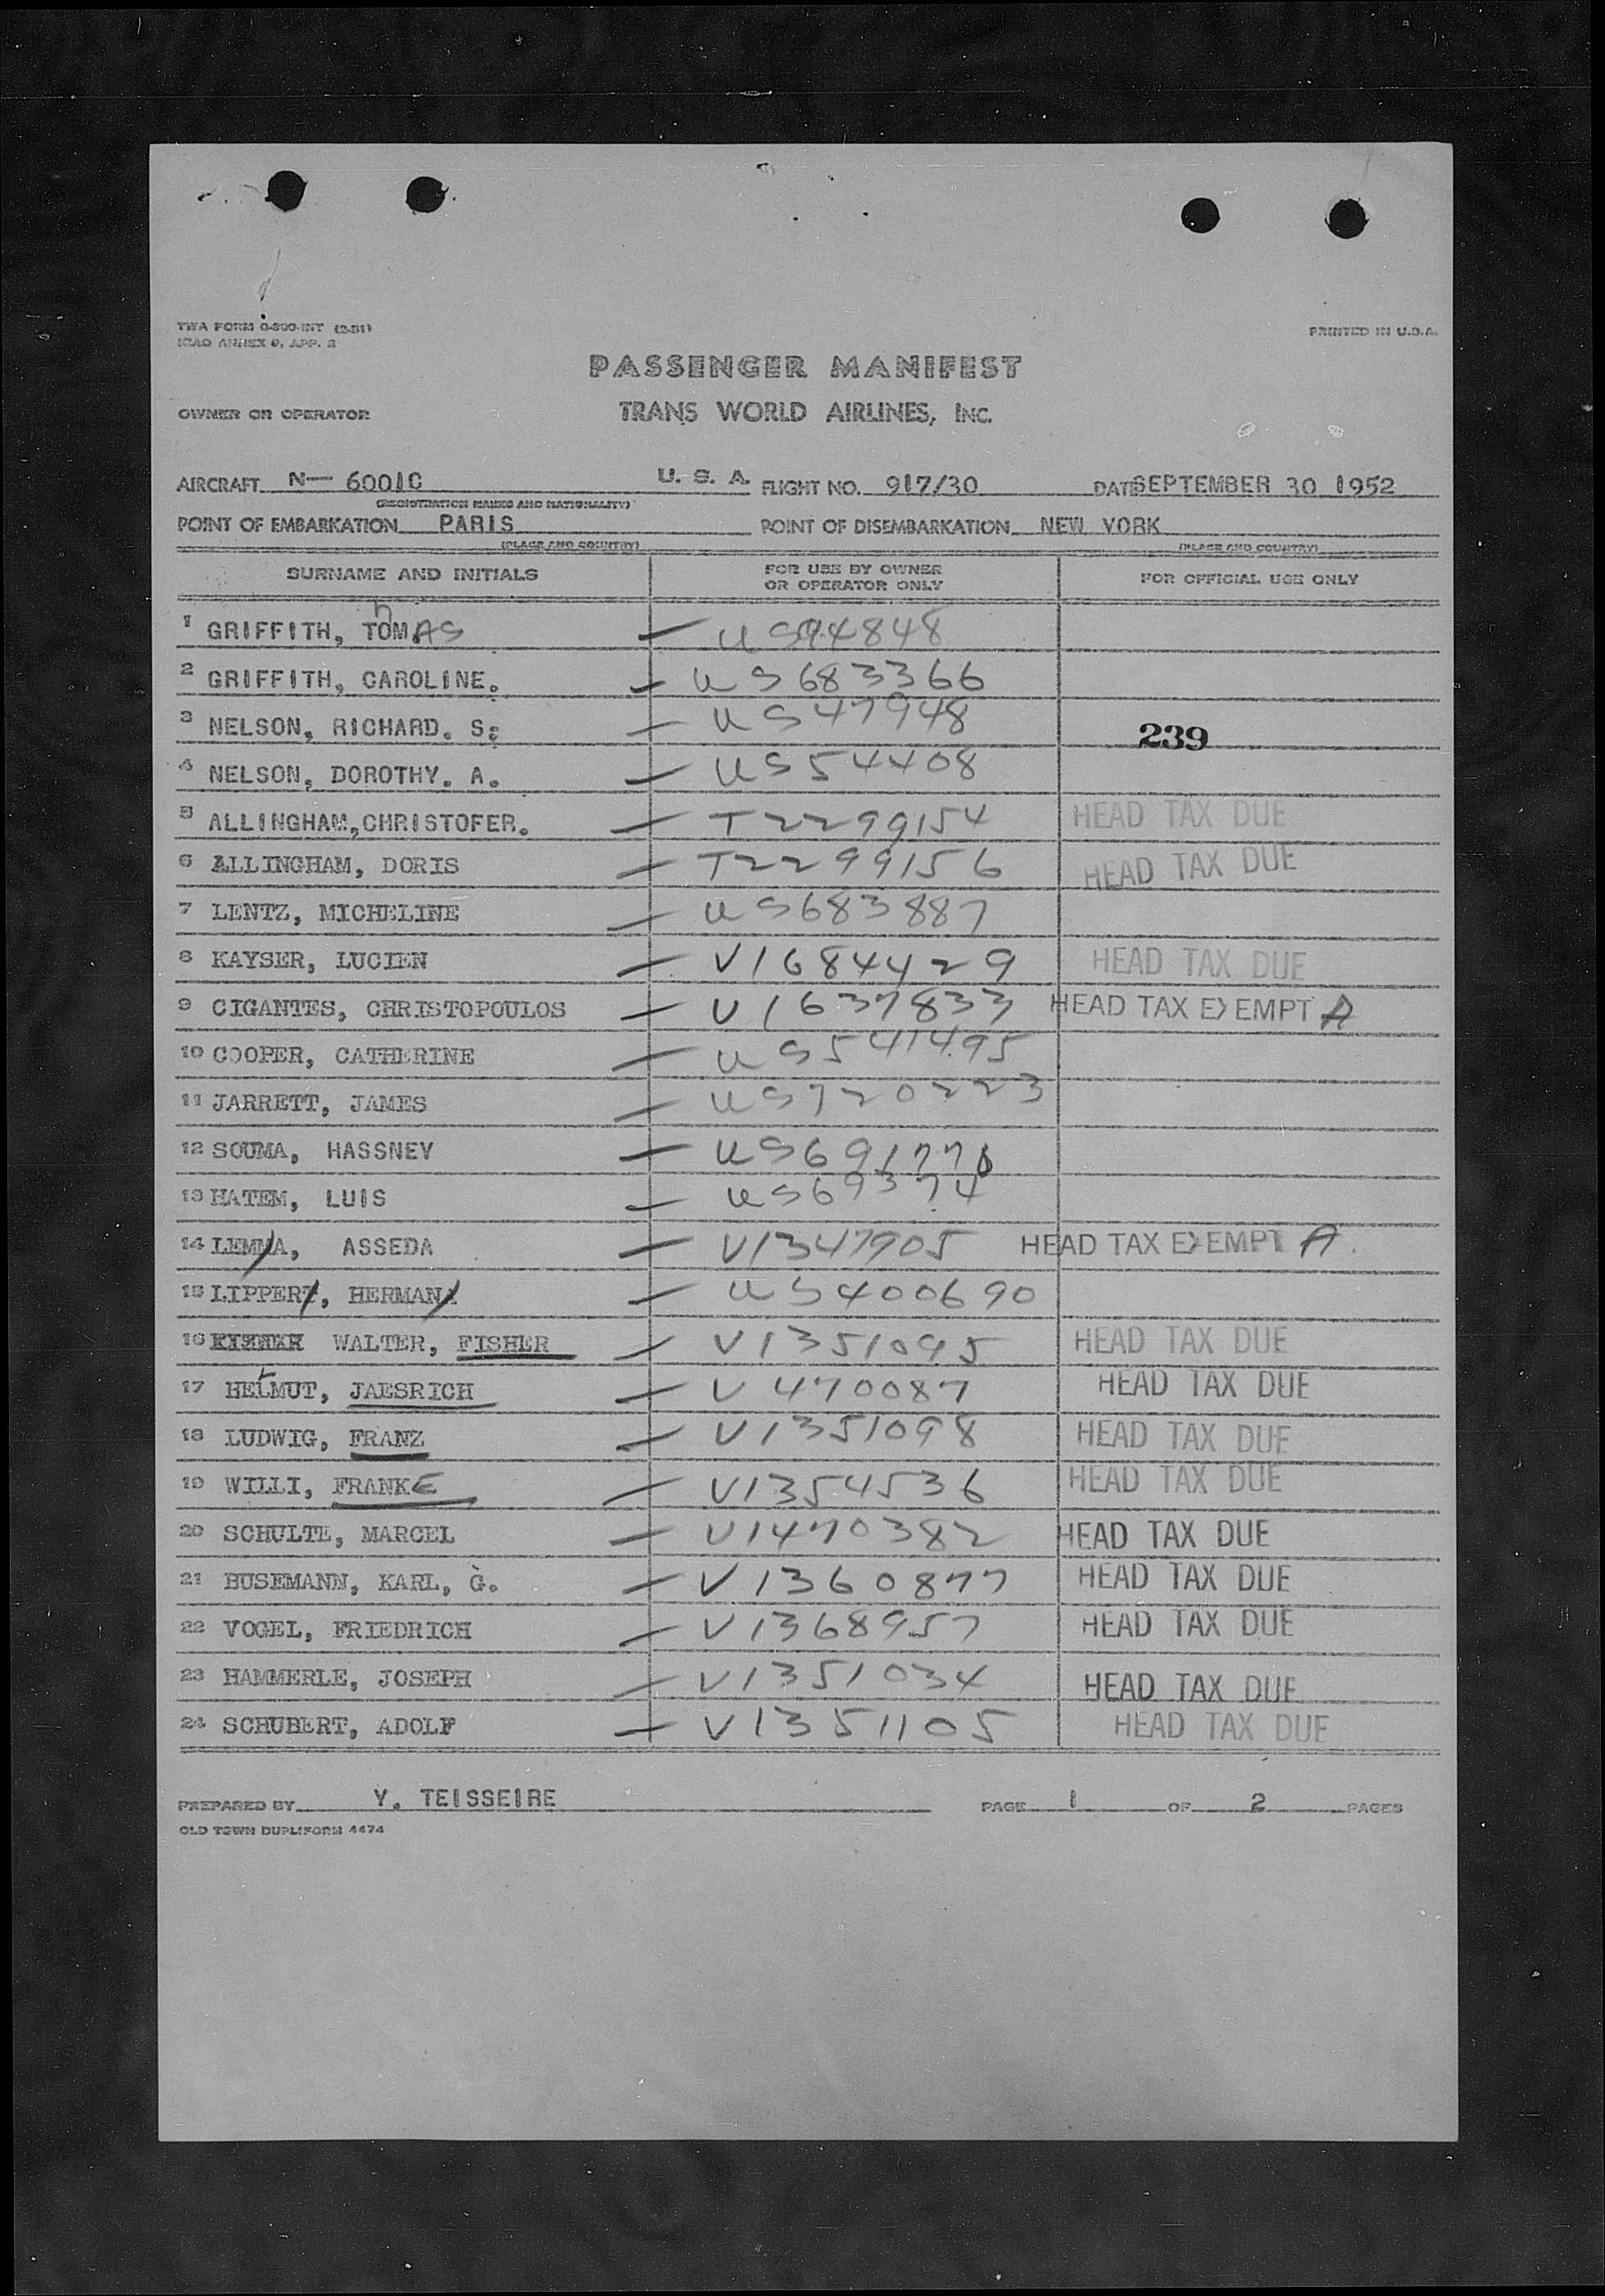 TWA FORM 0-800-INT (2-51)
ICAO ANNEX 9, APP. 2
PRINTED IN U.S.A.
PASSENGER MANIFEST
OWNER OR OPERATOR TRANS WORLD AIRLINES, INC.
AIRCRAFT N— 6001C U. S. A. FLIGHT NO. 917/30 DATE SEPTEMBER 30 1952
(REGISTRATION MARKS AND NATIONALITY)
POINT OF EMBARKATION PARIS POINT OF DISEMBARKATION NEW YORK
(PLACE AND COUNTRY) (PLACE AND COUNTRY)
SURNAME AND INITIALS FOR USE BY OWNER OR OPERATOR ONLY FOR OFFICIAL USE ONLY
h
1 GRIFFITH, TOMAS — US94848
2 GRIFFITH, CAROLINE. — US683366
3 NELSON, RICHARD. S. — US47948 239
4 NELSON, DOROTHY. A. — US54408
5 ALLINGHAM,CHRISTOFER. — T2299154 HEAD TAX DUE
6 ALLINGHAM, DORIS — T2299156 HEAD TAX DUE
7 LENTZ, MICHELINE — US683887
8 KAYSER, LUCIEN — V1684429 HEAD TAX DUE
9 CIGANTES, CHRISTOPOULOS — V1637833 HEAD TAX EXEMPT A
10 COOPER, CATHERINE — US541495
11 JARRETT, JAMES — US720223
12 SOUMA, HASSNEY — US691770
13 HATEM, LUIS — US69374
14 LEMMA, ASSEDA — V1347905 HEAD TAX EXEMPT A.
15 LIPPERT, HERMAN — US400690
16 WALTER, FISHER — V1351095 HEAD TAX DUE
17 HELMUT, JAESRICH — V470087 HEAD TAX DUE
18 LUDWIG, FRANZ — V1351098 HEAD TAX DUE
19 WILLI, FRANKE — V1354536 HEAD TAX DUE
20 SCHULTE, MARCEL — V1470382 HEAD TAX DUE
21 BUSEMANN, KARL, G. — V1360877 HEAD TAX DUE
22 VOGEL, FRIEDRICH — V1368957 HEAD TAX DUE
23 HAMMERLE, JOSEPH — V1351034 HEAD TAX DUE
24 SCHUBERT, ADOLF — V1351105 HEAD TAX DUE
PREPARED BY Y. TEISSEIRE PAGE 1 OF 2 PAGES
OLD TOWN DUPLIFORM 4474